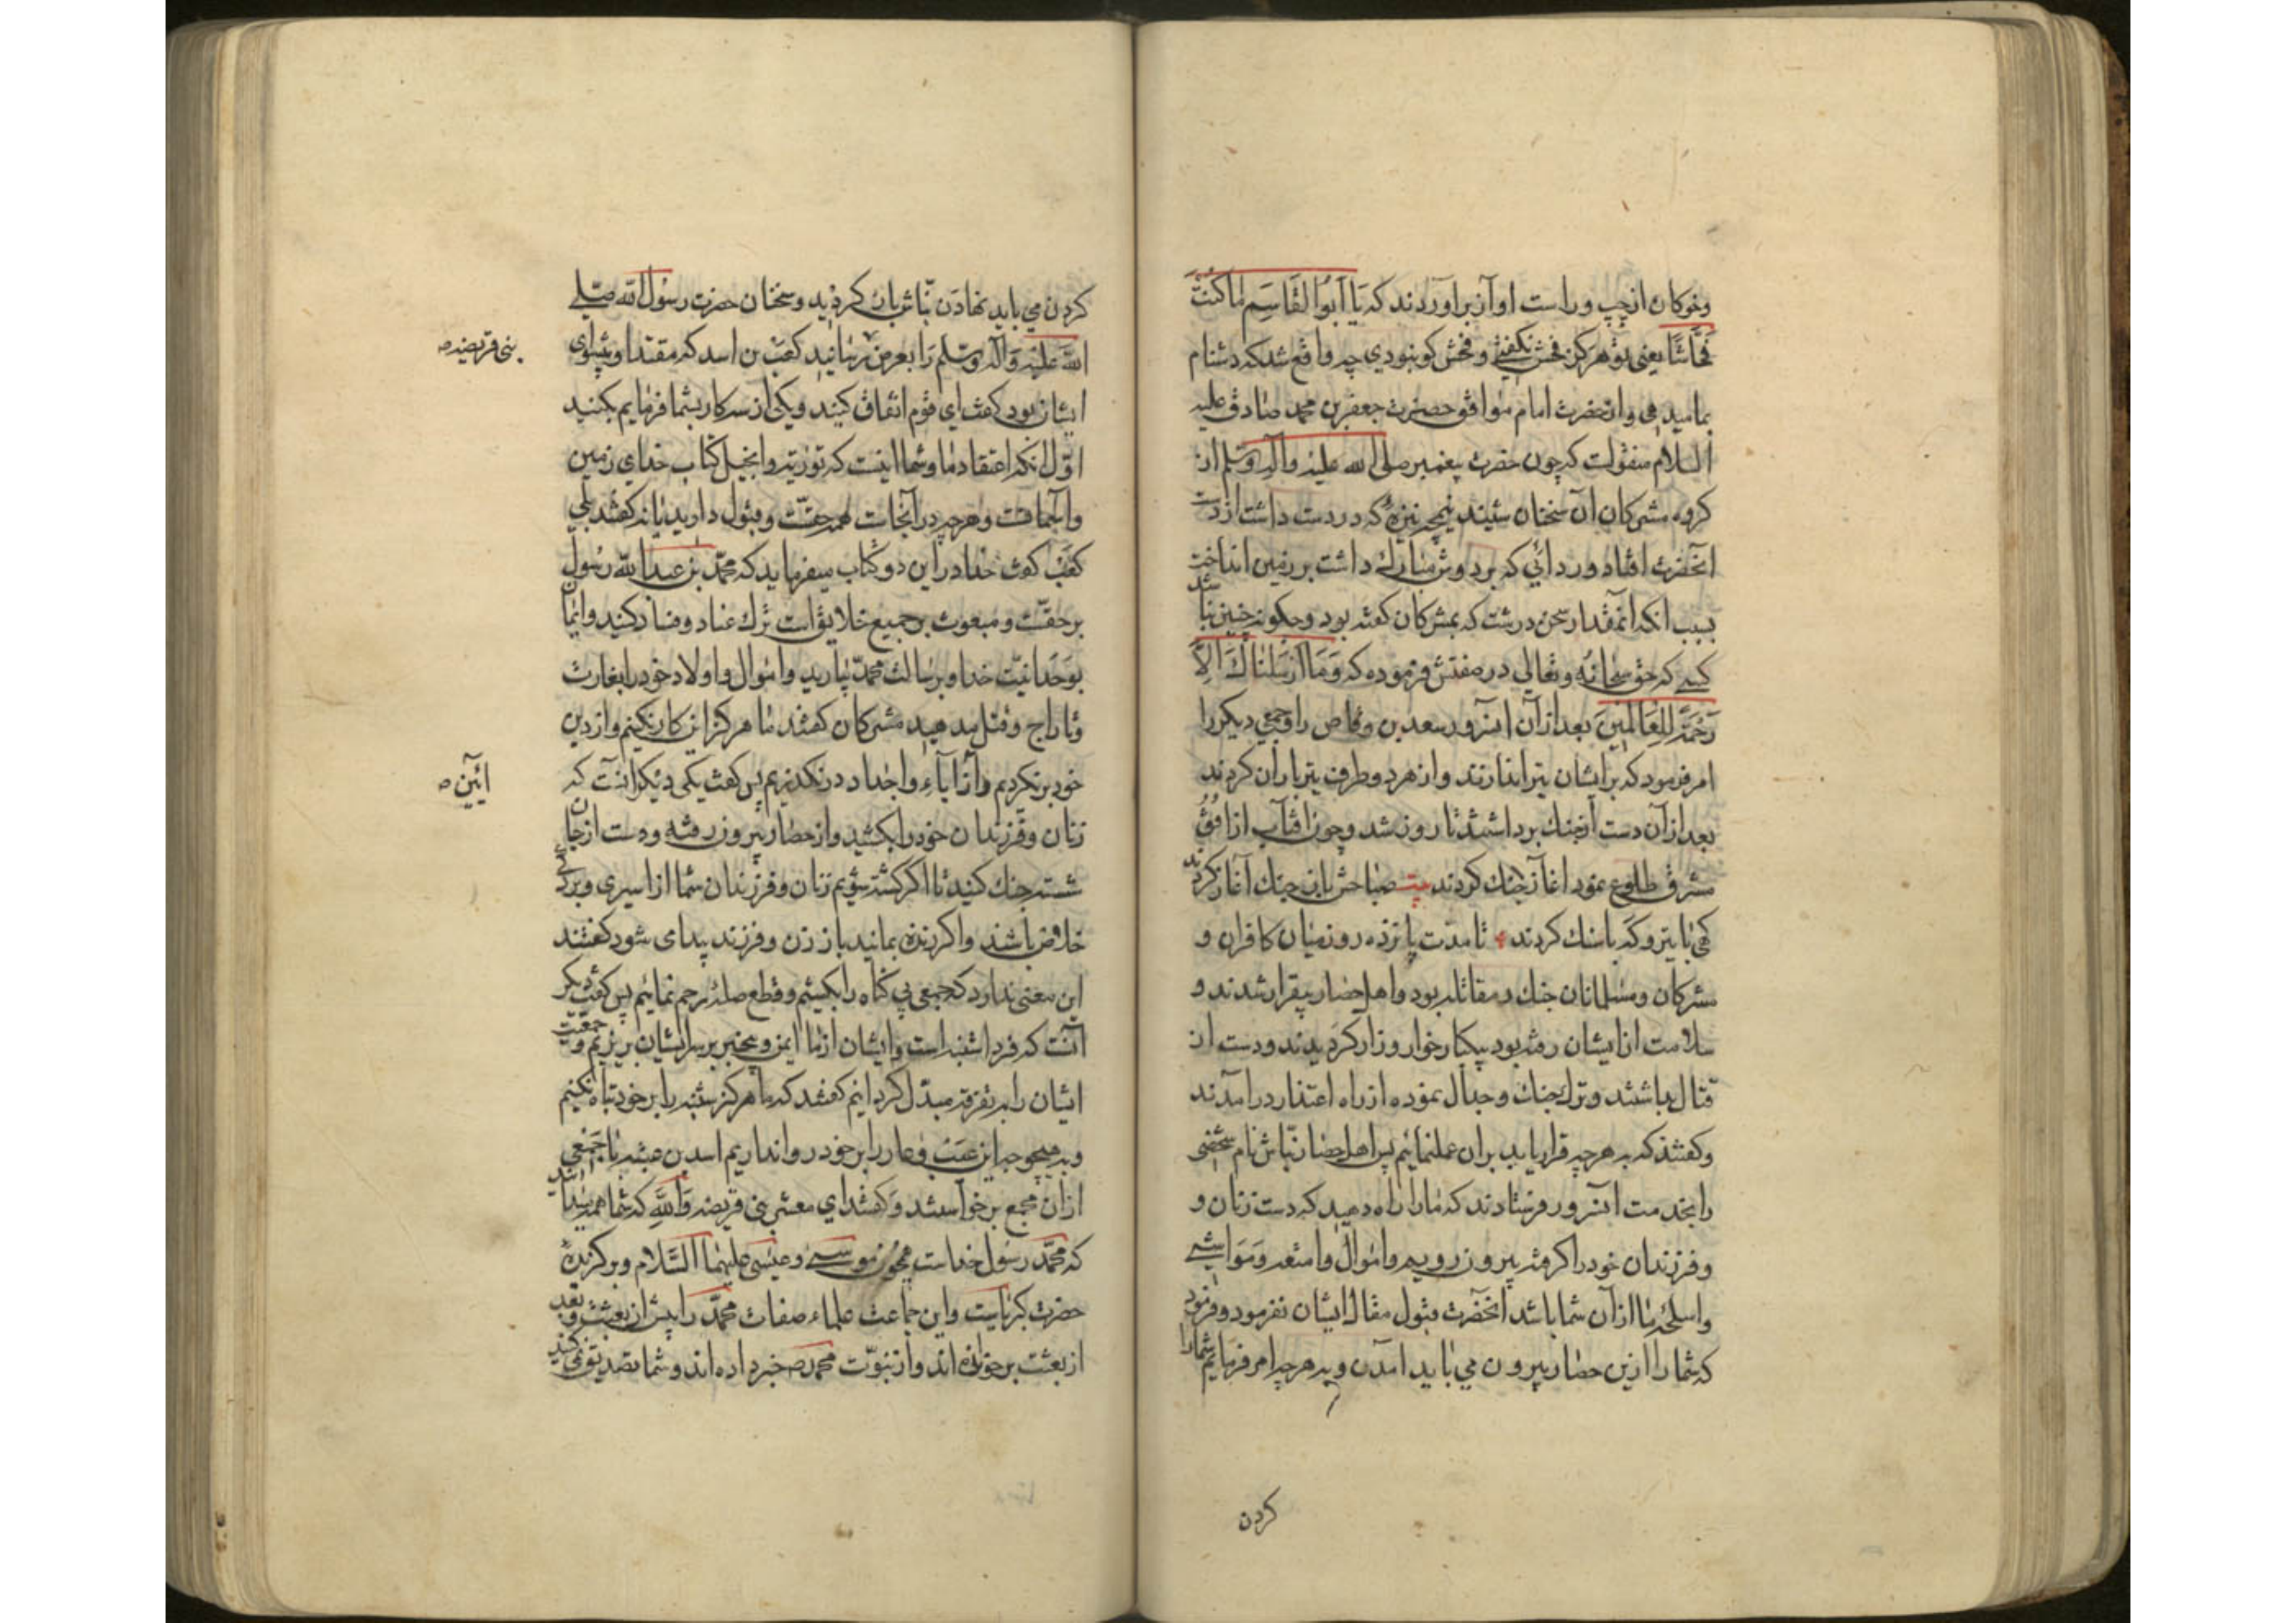 وخوکان از چپ و راست او آز براوردند که یَا اَبُوا القَاسِم مٰا کُنتَ
فَحَّاشًا یعنی تو هرکز فحش نکفتی و فحش کو نبودی چه واقع شد که دشنام
بما میدهی و از حضرت امام موافق حضرت جعفر بن محمد صٰادق علیه
السلام منقولست که چون حضرت پیغمبر صلی الله علیه وآله وسلم از
کروه مشرکان آن سخنان شنید نیم نیزهٔ که در دست داشت از دست
انحضرت افتاد و ردائی که بر دوش مبٰارک داشت بر زمین انداخت
بسبب انکه انمقدار سخن درشت که بمشرکان کفته بود و چکونه چنین نباشد
کسے که حق سبحانه وتعالی در صفتش فرموده که وَمَا اَرْسَلنَاکَ اِلاَّ
رَحْمَةً لِلعَالَمِینَ بعد از آن انسرور سعد بن وقاص را وجمعی دیکر را
امر فرمود که بر ایشان تیر اندازند و از هر دو طرف تیر باران کردند
بعد از آن دست از جنک برداشتند تا روز شد و چون افتاب از افُقُ
مشرق طلوع نمود اغاز جنک کردند بیت صباحش باز جنک آغاز کردند
کهی با تیر و که با سنک کردند تا مدت پانزده روز میان کافران و
مشرکان و مسلمانان جنک و مقاتله بود و اهل حصار بیقرار شدند و
سلامت از ایشان رفته بود بیکبار خوار و زار کردیدند و دست از
قتال بداشتند و ترک جنک و جدال نموده از راه اعتذار درامدند
و کفتند که به هرچه قرار یابد بران عمل نمائیم پس اهل حصار نبّاش نام شخصی
را بخدمت آنسرور فرستادند که مارا راه دهید که دست زنان و
و فرزندان خود را کرفته بیرون رویم و اموال و امتعه و مَوَاشے
و اسلحهٔ ما از آن شما باشد انحضرت قبول مقال ایشان نفرمود و فرمود
که شما را ازین حصار بیرون می باید امدن و به هرچه امر فرمایم شما را
کردن
کردن می باید نهادن نبّاش باز کردید و سخنان حضرت رسول الله صلے
الله علیه وآله وسلم را بعرض رسانید کعب بن اسد که مقتدا و پیشوای
بنی قریضه
ایشان بود کفت ای قوم اتفاق کنید و یکی از سه کار بشما فرمایم بکنید
اوّل انکه اعتقاد ما و شما اینست که توریة و انجیل کتاب خدای زمین
و آسمانست و هرچه در آنجاست همه حقست و قبول دارید یا نه کفتند بلی
کعب کفت خدا در این دو کتاب میفرماید که محمّد بن عبد الله رسُول
برحقست و مبعوث بر جمیع خلایق است ترک عناد و فساد کنید و ایمان
بوحدانیّت خدا و برسالت محمّد بیارید و اموال و اولاد خود را بغارت
و تاراج و قتل مدهید مشرکان کفتند ما هرکز این کار نکنیم و از دین
خود برنکردیم و از آباء و اجداد درنکذریم پس کفت یکی دیکر انست که
ائین
زنان و فرزندان خود را بکشید و از حصار بیرون رفته و دست از جان
شسته جنک کنید تا اکر کشته شویم زنان و فرزندان شما از اسیری و بردکی
خلاص باشند و اکر زنده بمانید باز زن و فرزند پیدا می شود کفتند
این معنی ندارد که جمعی بی کناه را بکشیم و قطع صلهٔ رحم نمائیم پس کفت دیکر
آنست که فردا شنبه است و ایشان از ما ایمن و بیخبر بر سر ایشان بریزیم و جمعیت
ایشان را به تفرقه مبدّل کردانیم کفتند که ما هرکز شنبه را بر خود تباه نکنیم
و به هیچوجه این عیب و عار را بر خود روا نداریم اسد بن عتبه با جَمعی
از ان مجمع برخواستند و کفتند ای معشر بنی قریضه وَاللّٰهِ که شما همه میدانید
که محمّد رسول خداست همچون موسے و عیسی علیهما السّلام و برکزیدهٔ
حضرت کبریاست و این جماعت علماء صفات محمّد را پیش از بعثت و بعد
از بعثت برخوانده اند و از نبوّت محمد خبر داده اند و شما تصدیق نمی کنید